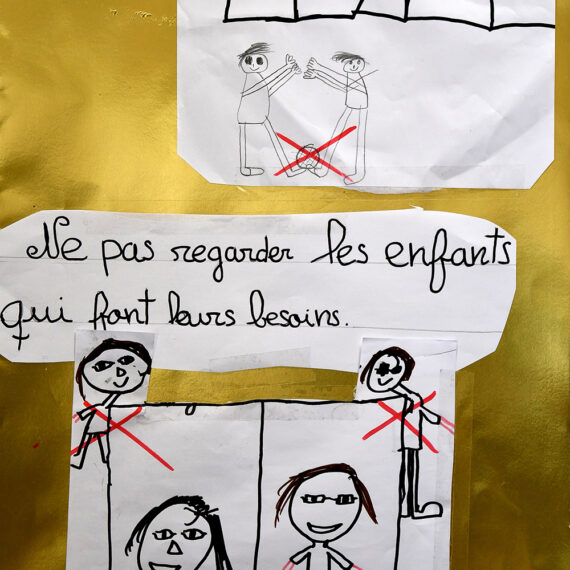 Ne pas regarder les enfants
qui font leurs besoins.